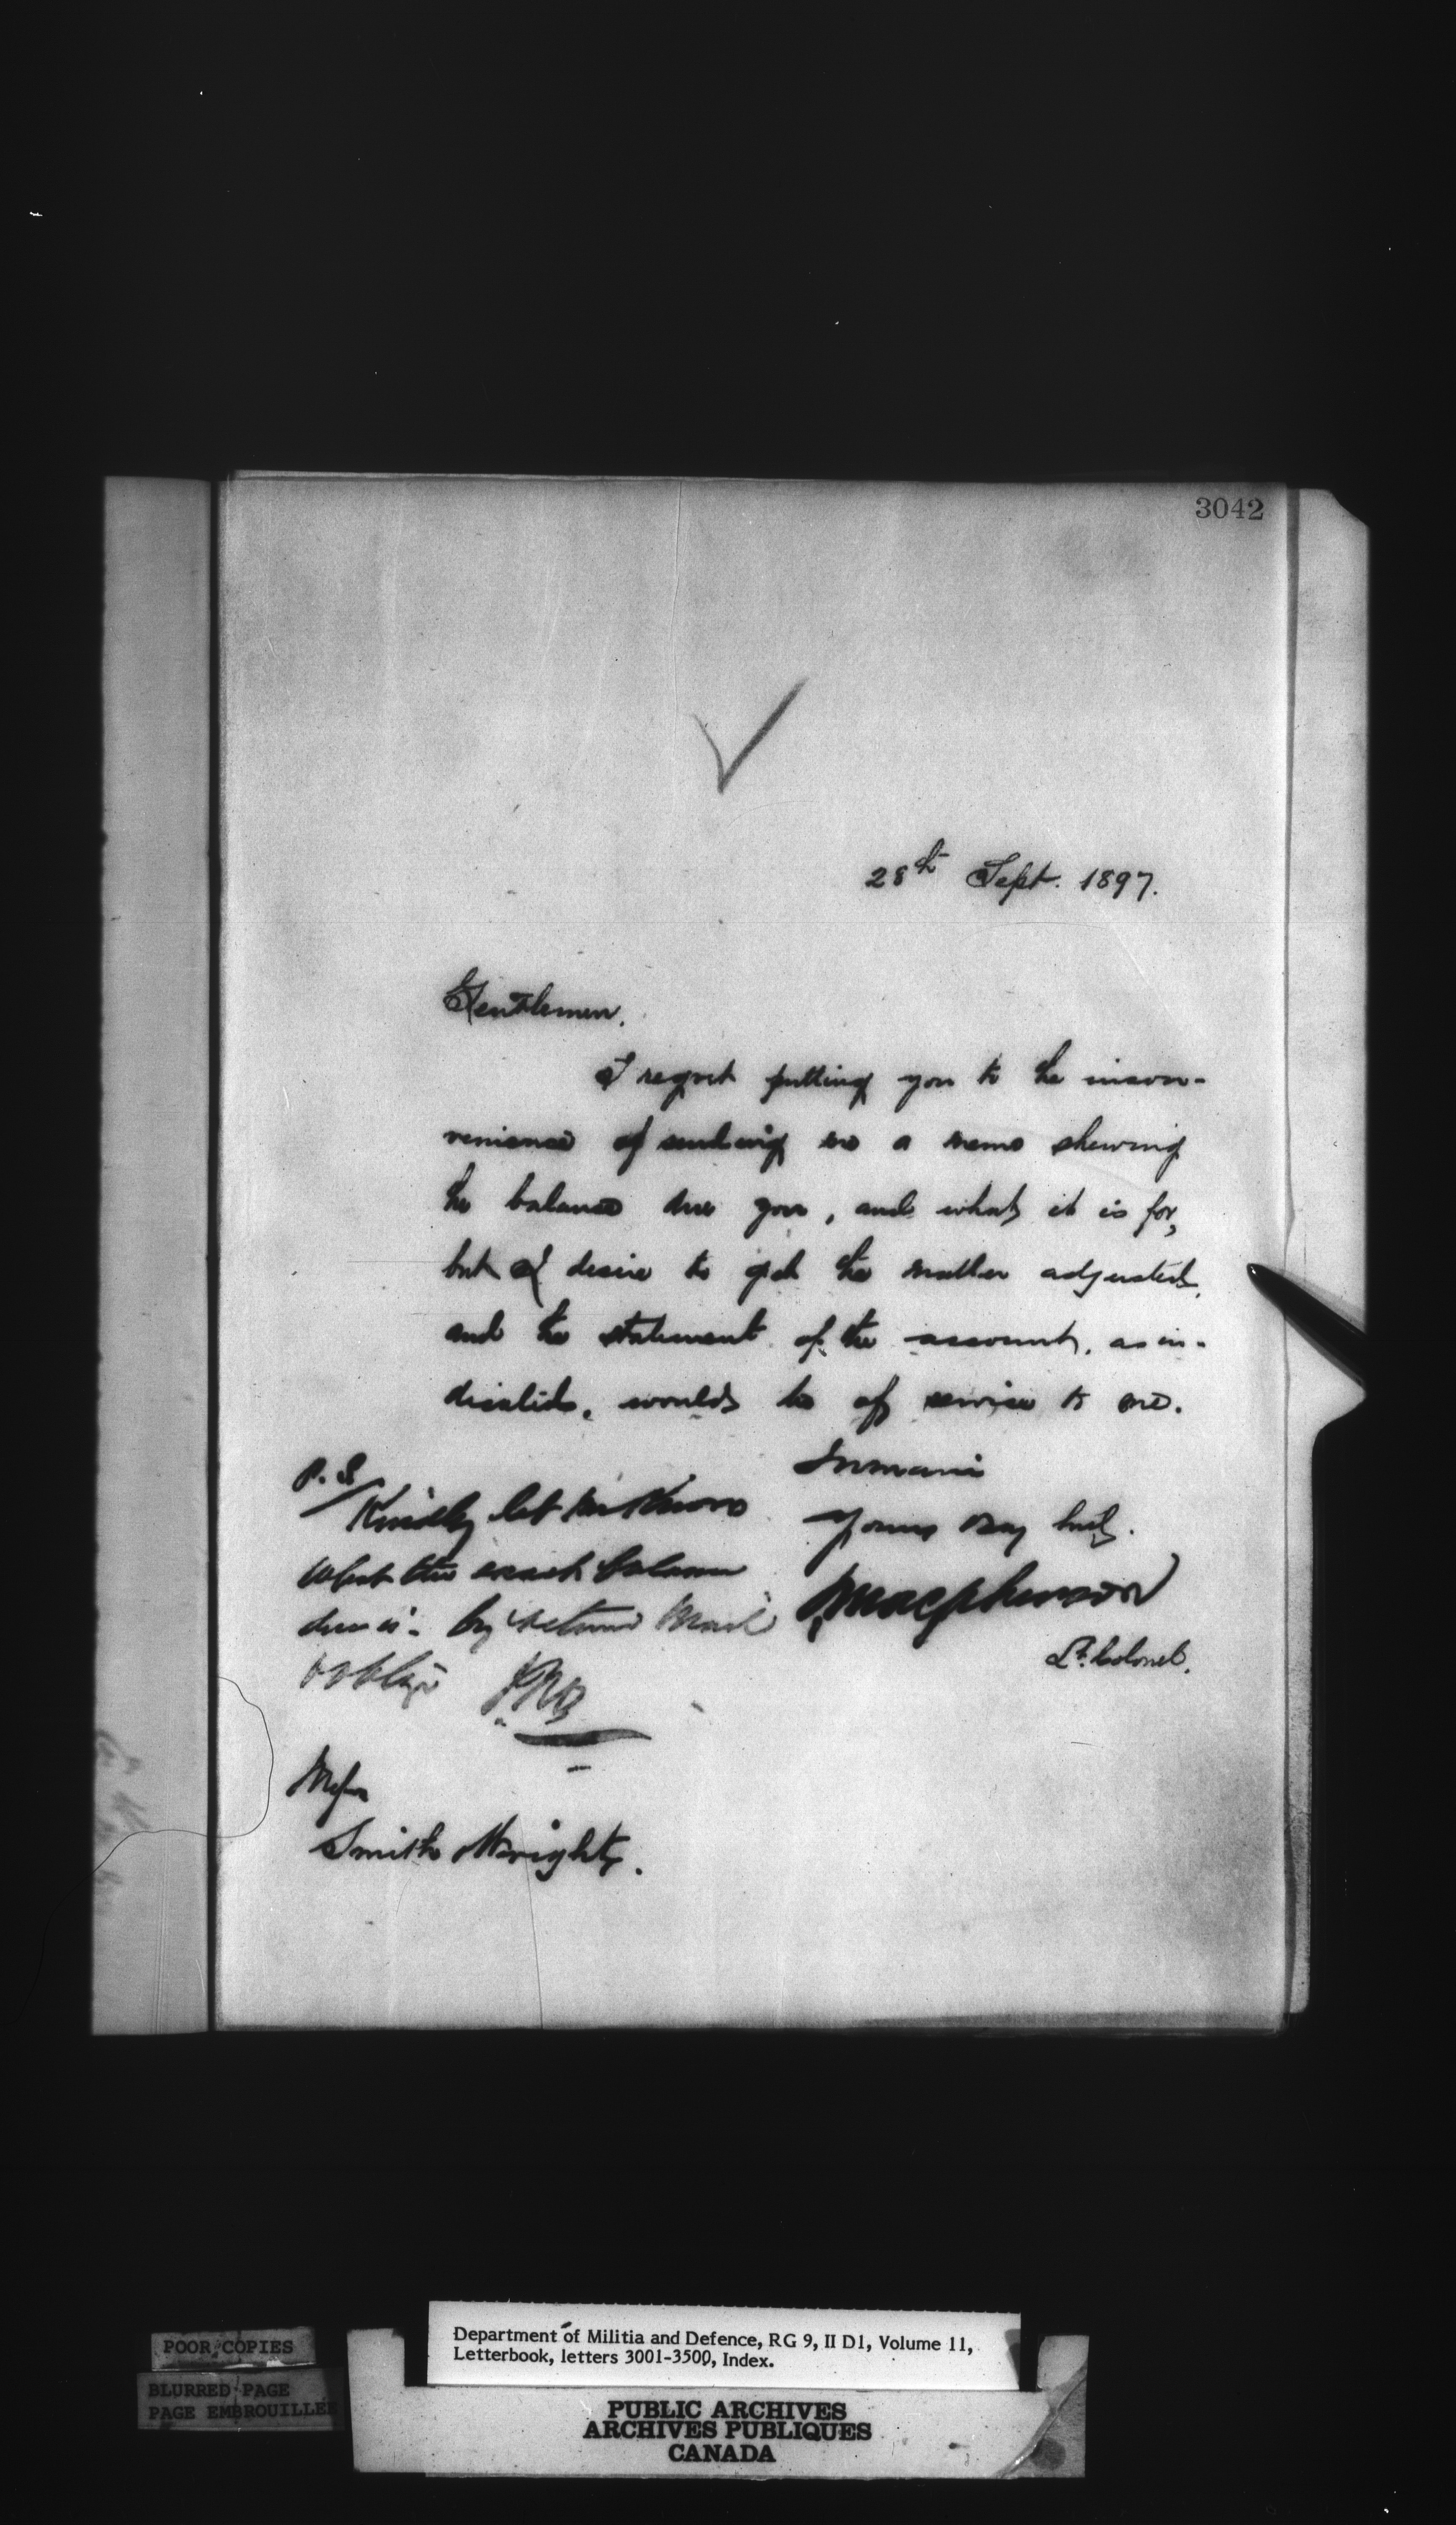 3042
28th Sept. 1897.
Gentlemen,
I regret putting you to the incon-
venience of sending me a memo shewing
the balance due you, and what it is for,
but I desire to get the matter adjusted,
and the statement of the account, as in-
dicated, would be of service to me.
I remain
Yours very truly.
Macpherson
Lt. Colonel.
P.S.
Kindly let me know
what the exact balance
due is - by return mail
& oblige
Messrs
Smith & Wright,
Department of Militia and Defence, RG 9, II D1, Volume 11,
Letterbook, letters 3001-3500, Index.
POOR COPIES
BLURRED PAGE
PAGE EMBROUILLEE
PUBLIC ARCHIVES
ARCHIVES PUBLIQUES
CANADA